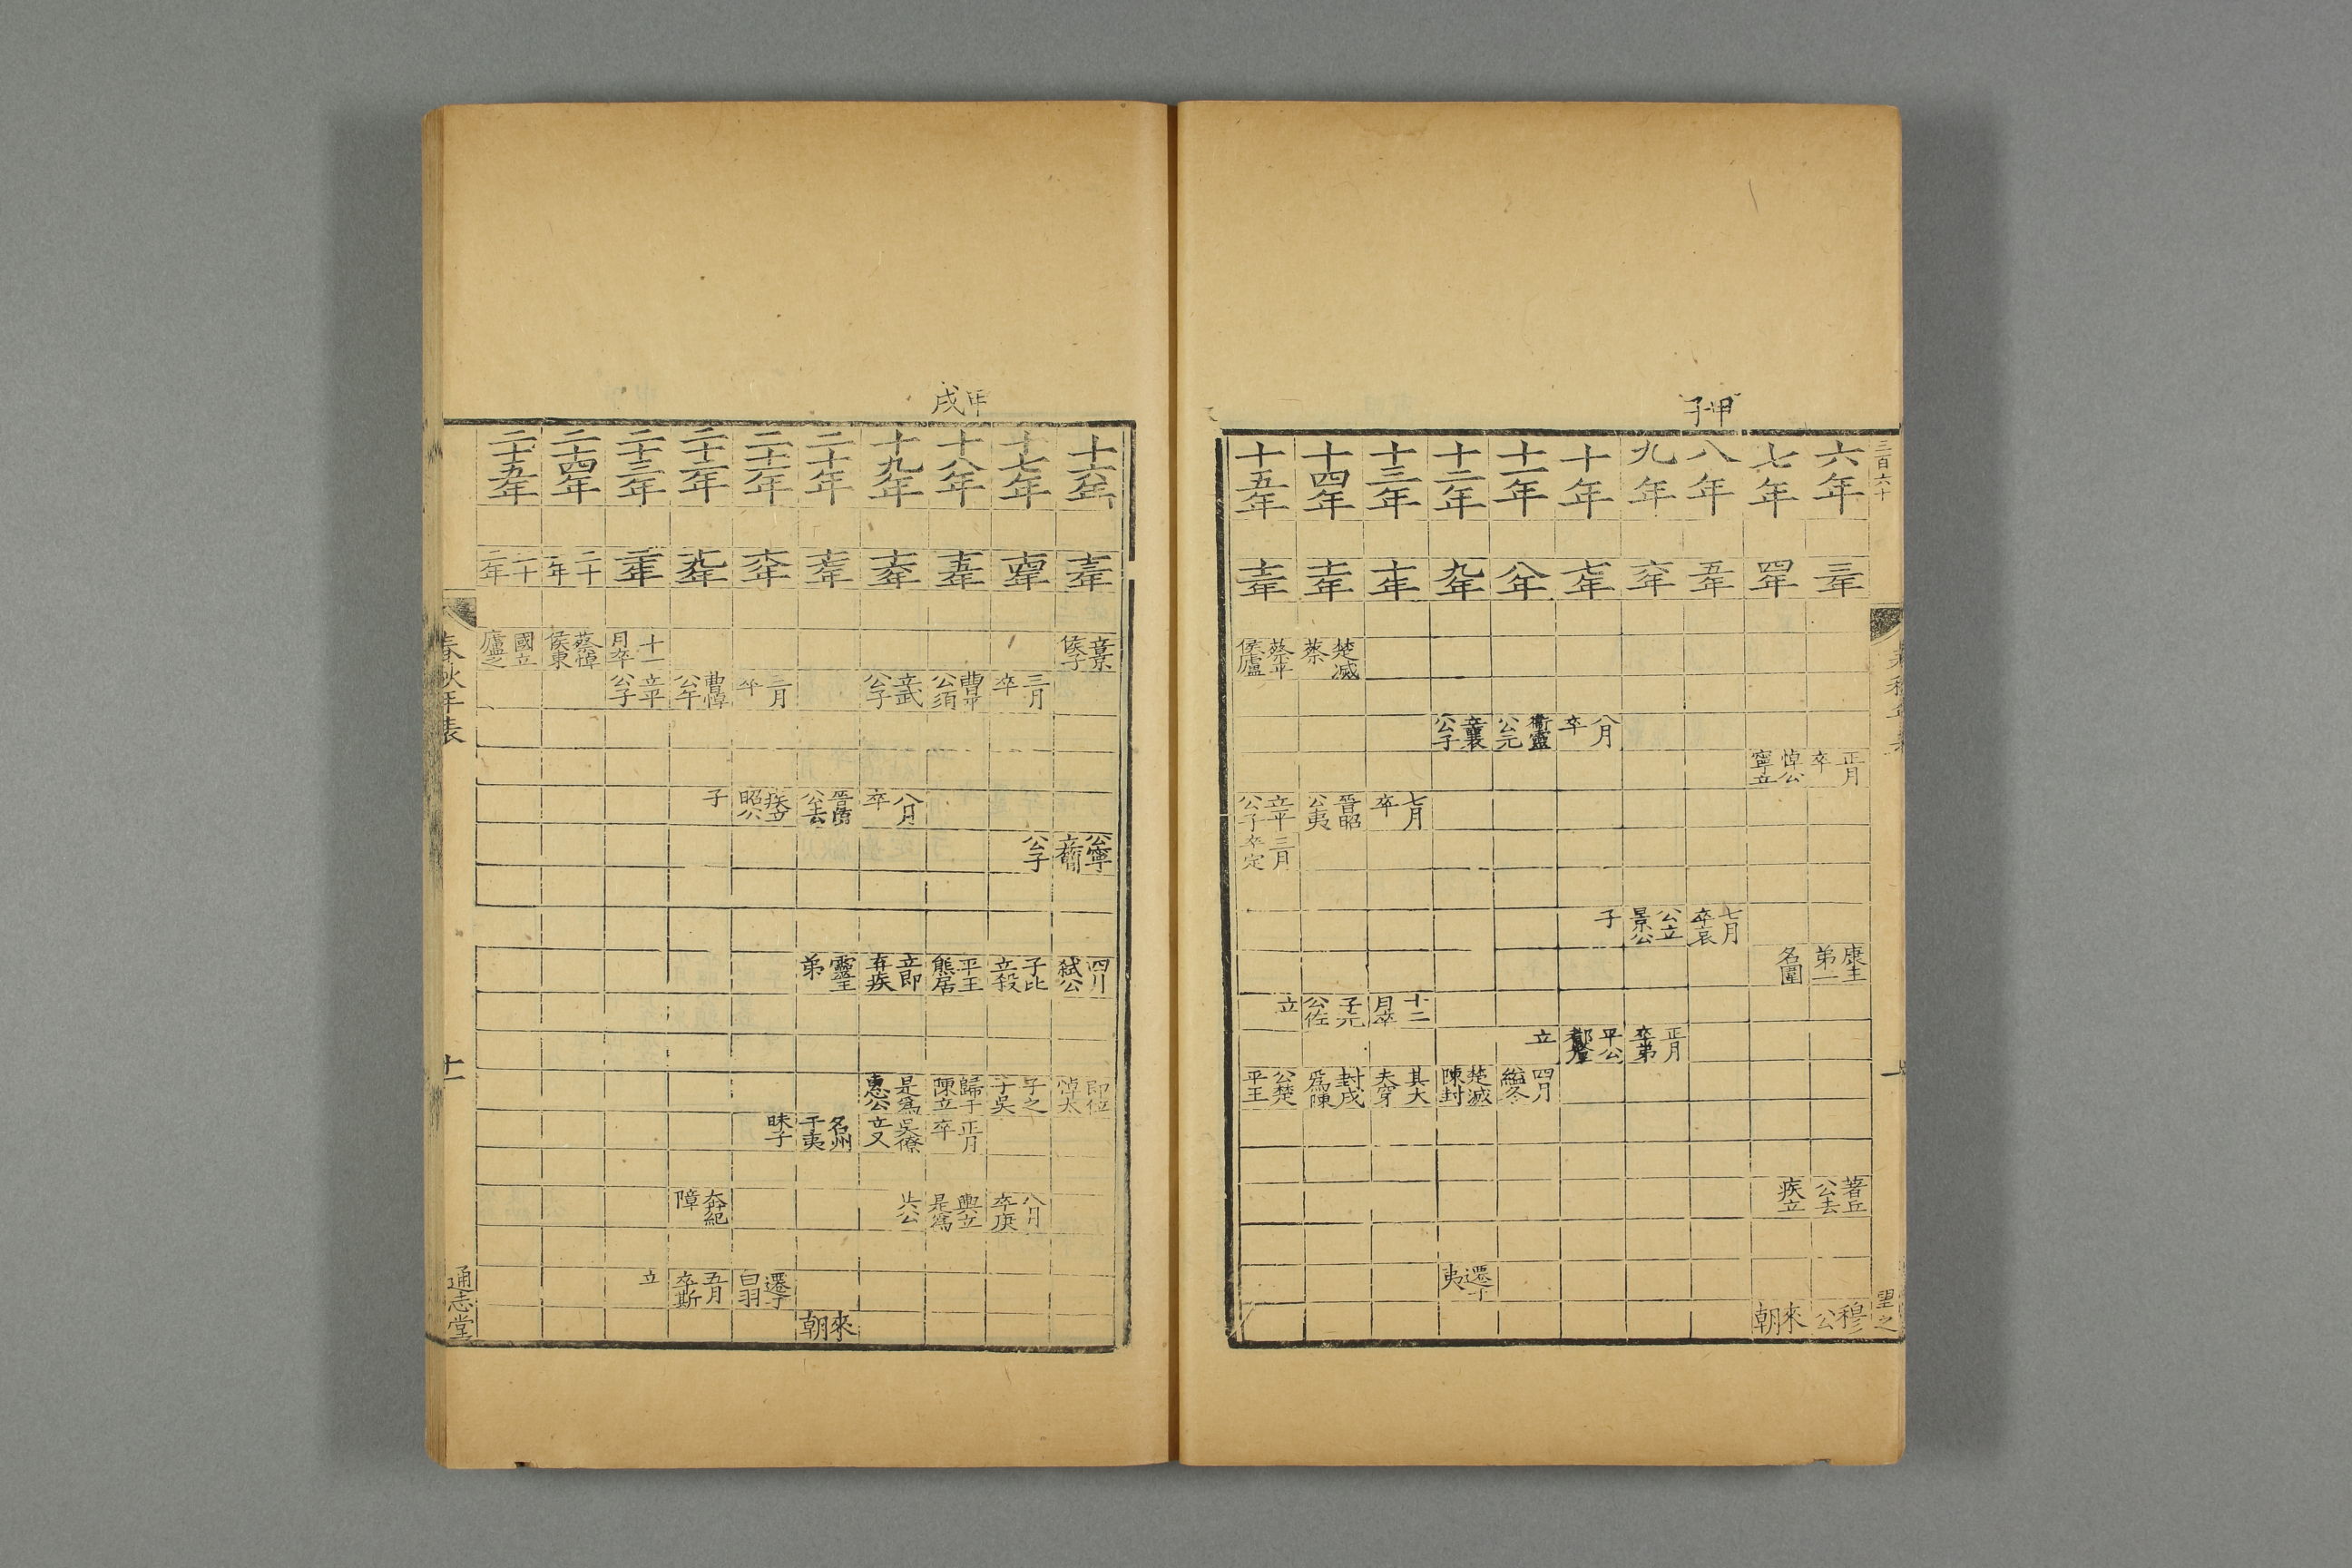 甲子
三百六十
六年 七年 八年 九年 十年 十一年 十二年 十三年 十四年 十五年
三年 四年 五年 六年 七年 八年 九年 十年 十一年 十二年
楚滅蔡 蔡平侯廬
八月卒 衛靈公元 立襄公子
正月卒 悼公寧立
七月卒 晉昭公夷 立平公子
三月卒定
七月卒哀 公立景公 子
康王弟二 名圍
十二月卒 子元公佐 立
正月卒弟 平公郁釐 立
四月縊冬 楚滅陳封 其大夫穿 封戌爲陳 公楚平王
著丘公去 疾立
遷于夷
穆公 來朝
望之
甲戌
十六年 十七年 十八年 十九年 二十年 二十一年 二十二年 二十三年 二十四年 二十五年
十三年 十四年 十五年 十六年 十七年 十八年 十九年 二十年 二十一年 二十二年
立景侯子 十一月卒 蔡悼侯東 國立廬之
三月卒 曹平公須 立武公子 三月卒 曹悼公午 立平公子
八月卒 晉頃公去 疾立昭公 子
公寧立簡 公子
四月弒公 子比立殺 平王熊居 立即弃疾 靈王弟
即位悼太 子之子吳 歸于陳立 是爲惠公
正月卒 吳僚立又 名州于夷 昧子
八月卒庚 輿立是爲 共公 奔紀障
遷于白羽 五月卒斯 立
來朝
春秋年表
十一
通志堂